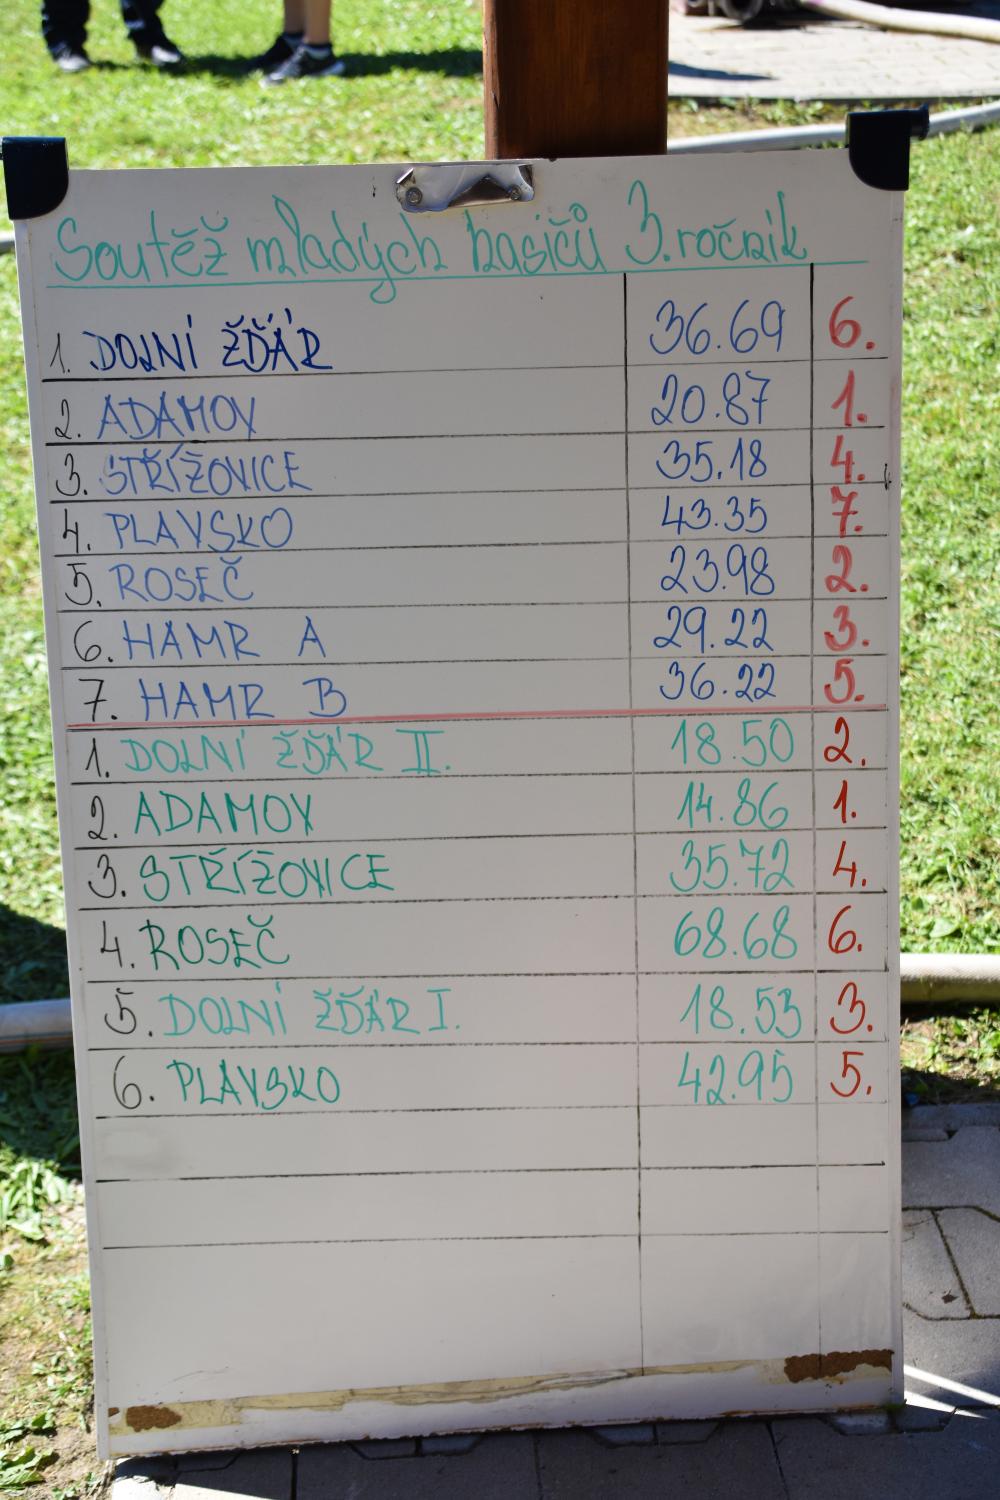 Soutěž mladých hasičů 3. ročník
1. DOLNÍ ŽĎÁR 36.69 6.
2. ADAMOV 20.87 1.
3. STŘÍŽOVICE 35.18 4.
4. PLAVSKO 43.35 7.
5. ROSEČ 23.98 2.
6. HAMR A 29.22 3.
7. HAMR B 36.22 5.
1. DOLNÍ ŽĎÁR II. 18.50 2.
2. ADAMOV 14.86 1.
3. STŘÍŽOVICE 35.72 4.
4. ROSEČ 68.68 6.
5. DOLNÍ ŽĎÁR I. 18.53 3.
6. PLAVSKO 42.95 5.